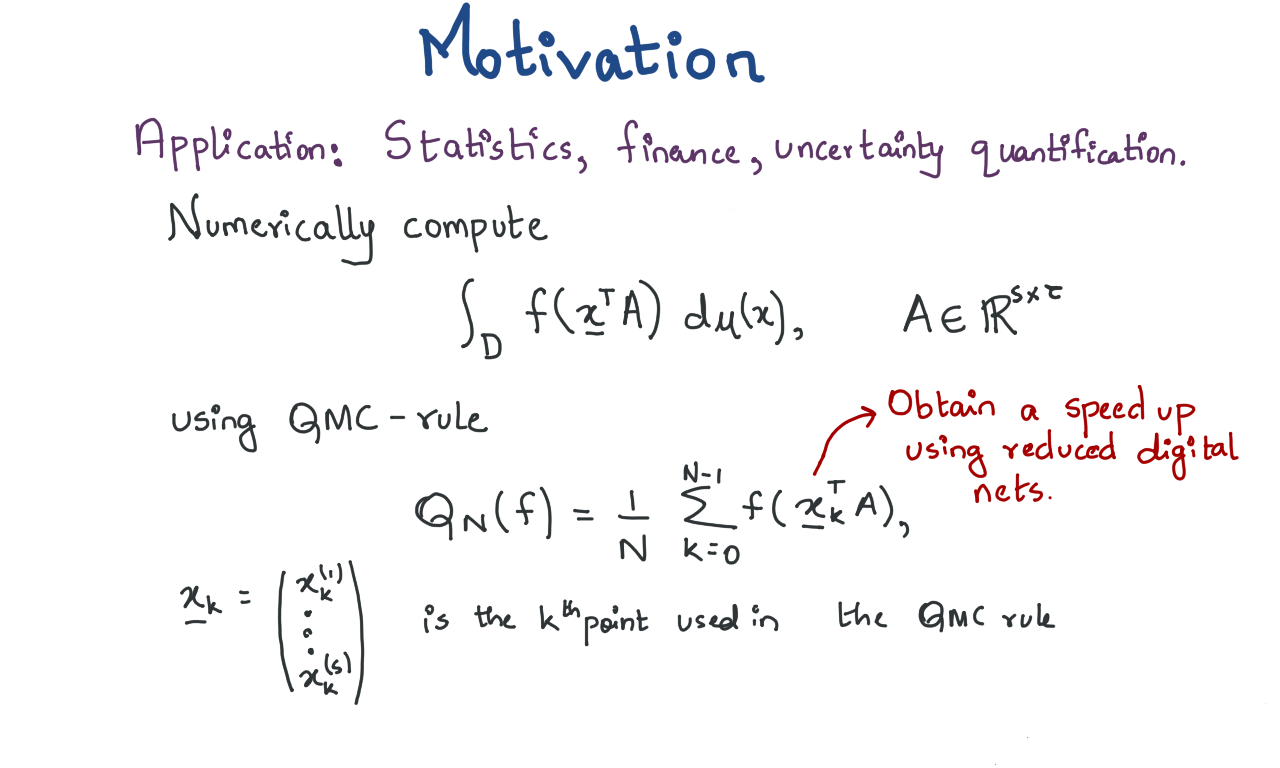 Motivation
Application: Statistics, finance, uncertainty quantification.
Numerically compute
∫_D f(x̲ᵀA) dμ(x), A ∈ ℝ^{s×τ}
using QMC-rule
Obtain a speed up
using reduced digital
nets.
Q_N(f) = 1/N ∑_{k=0}^{N-1} f(x̲_kᵀ A),
x̲_k = (x_k^{(1)} ⋮ x_k^{(s)}) is the kᵗʰ point used in the QMC rule